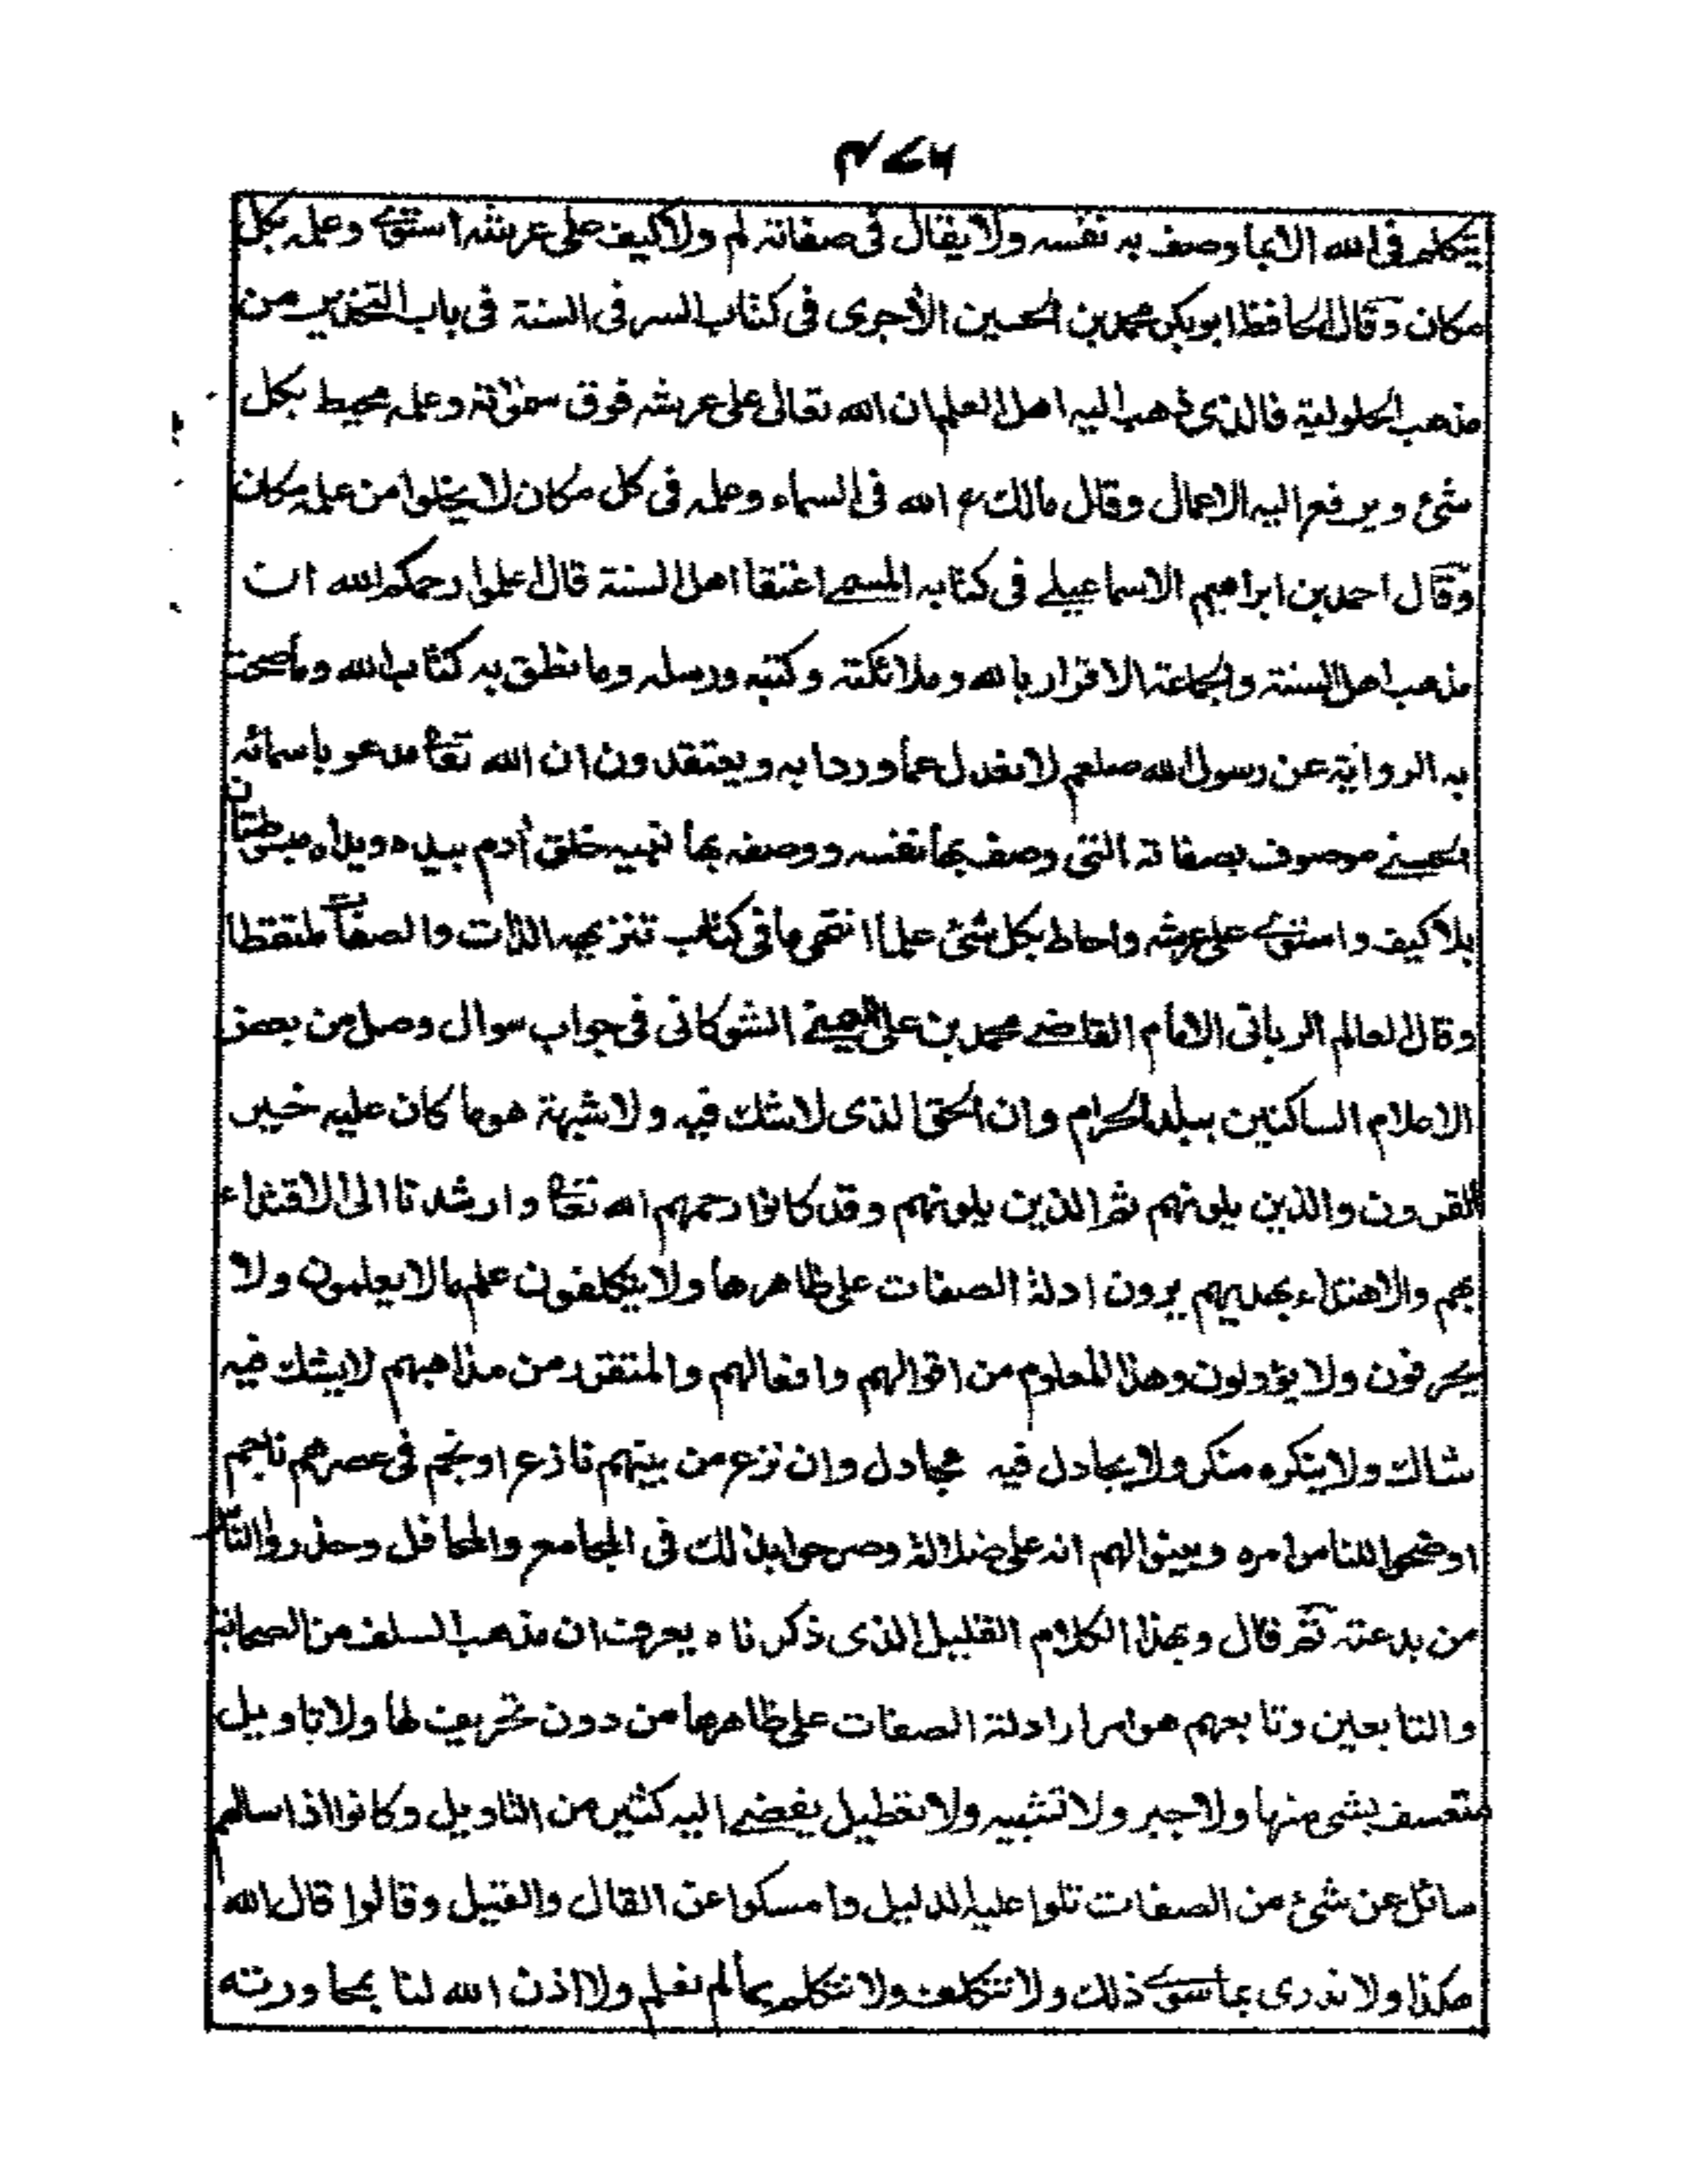 ۴۷۶
يتكلم فى الله الا بما وصف به نفسه ولا يقال فى صفاته لم ولا كيف على عرشه استوى وعلمه بكل
مكان وقال الحافظ ابو بكر محمد بن الحسين الأجرى فى كتاب السر فى السنة فى باب التحذير من
مذهب الحلولية فالذى ذهب اليه اهل العلم ان الله تعالى على عرشه فوق سمٰوٰته وعلمه محيط بكل
شئ ويرفع اليه الاعمال وقال مالك الله فى السماء وعلمه فى كل مكان لا يخلوا من علمه مكان
وقال احمد بن ابراهيم الاسماعيلے فى كتابه المسمے اعتقا اهل السنة قال اعلموا رحمكم الله ان
مذهب اهل السنة والجماعة الاقرار بالله وملائكته وكتبه ورسله وما نطق به كتاب الله وما صحت
به الرواية عن رسول الله صلعم لا نعدل عما وردا به ويعتقدون ان الله تعا مدعو باسمائه
الحسنے موصوف بصفاته التى وصف بها نفسه ووصفه بها نبيه خلق أدم بيده ويداه مبسوطتان
بلا كيف واستوے على عرشه واحاط بكل شئ علما انتهى ما فى كتاب تنزيه الذات والصفات ملتقطا
وقال العالم الربانى الامام القاضے محمد بن على الشوكانى فى جواب سوال وصل من بعض
الاعلام الساكنين ببلد الحرام وان الحق الذى لا شك فيه ولا شبهة هو ما كان عليه خير
القرون والذين يلونهم ثم الذين يلونهم وقد كانوا رحمهم الله تعا وارشدنا الى الاقتداء
بهم والاهتداء بهديهم يرون ادلة الصفات على ظاهرها ولا يتكلفون علم ما لا يعلمون ولا
يحرفون ولا يؤولون وهذا المعلوم من اقوالهم وافعالهم والمتقرر من مذاهبهم لا يشك فيه
شاك ولا ينكره منكر ولا يجادل فيه مجادل وان نزع من بينهم نازع او نجم فى عصرهم ناجم
اوضحوا للناس امره وبينوا لهم انه على ضلالة وصرحوا بذلك فى المجامع والمحافل وحذروا الناس
من بدعته ثم قال وبهذا الكلام القليل الذى ذكرناه يعرف ان مذهب السلف من الصحابة
والتابعين وتابعهم هو امرار ادلة الصفات على ظاهرها من دون تحريف لها ولا تاويل
متعسف بشى منها ولا جبر ولا تشبيه ولا تعطيل يفضے اليه كثير من التاويل وكانوا اذا سالهم
سائل عن شئ من الصفات تلوا عليه الدليل وامسكوا عن القال والقيل وقالوا قال الله
هكذا ولا ندرى بما سوے ذلك ولا نتكلف ولا نتكلم بما لم نعلم ولا اذن الله لنا بمجاورته